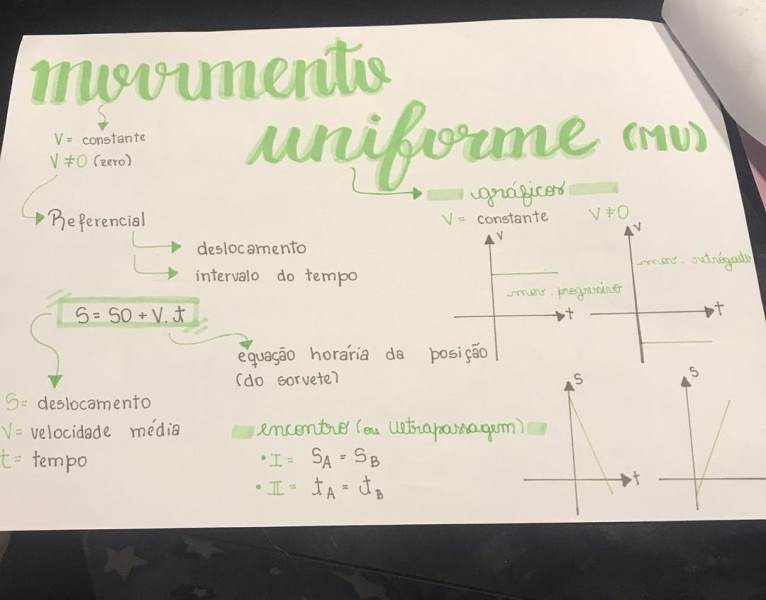 movimento
uniforme (MU)
V = constante
V ≠ 0 (zero)
Referencial
deslocamento
intervalo do tempo
S = SO + V.t
equação horária da posição
(do sorvete)
S = deslocamento
V = velocidade média
t = tempo
gráficos
V = constante
V ≠ 0
V
mov. progressivo
t
V
mov. retrógado
t
encontro (ou ultrapassagem)
• I = SA = SB
• II = tA = tB
S
t
S